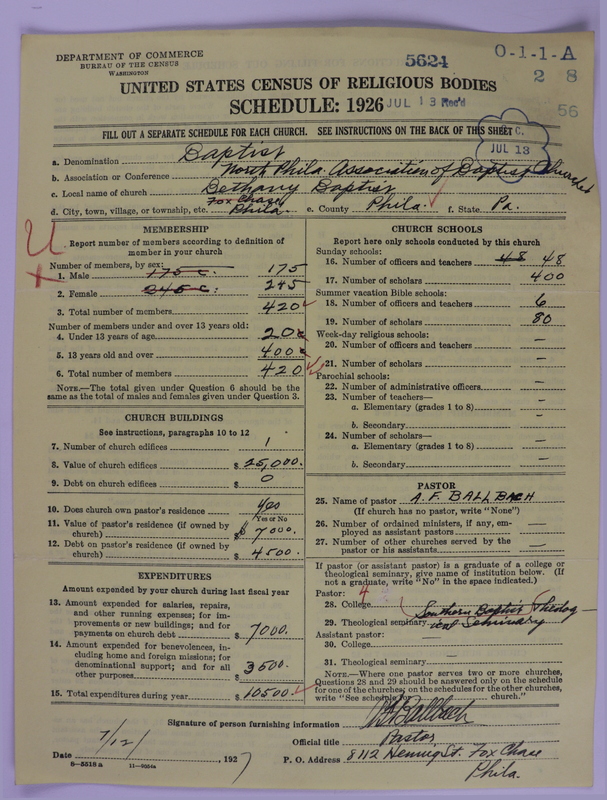 DEPARTMENT OF COMMERCE
BUREAU OF THE CENSUS
WASHINGTON
5624
O-1-1-A
2 8
56
UNITED STATES CENSUS OF RELIGIOUS BODIES
SCHEDULE: 1926
JUL 13 Rec'd
FILL OUT A SEPARATE SCHEDULE FOR EACH CHURCH. SEE INSTRUCTIONS ON THE BACK OF THIS SHEET
C.
JUL 13
a. Denomination Baptist
b. Association or Conference North Phila. Association of Baptist Churches
c. Local name of church Bethany Baptist
d. City, town, village, or township, etc. Fox Chase Phila. e. County Phila. f. State Pa.
MEMBERSHIP
Report number of members according to definition of
member in your church
Number of members, by sex:
1. Male 175 c. 175
2. Female 245 c. 245
3. Total number of members 420
Number of members under and over 13 years old:
4. Under 13 years of age 20 c
5. 13 years old and over 400 c
6. Total number of members 420
NOTE.—The total given under Question 6 should be
same as the total of males and females given under Question 3.
CHURCH BUILDINGS
See instructions, paragraphs 10 to 12
7. Number of church edifices 1
8. Value of church edifices $ 25,000.
9. Debt on church edifices $ 0
10. Does church own pastor's residence yes
Yes or No
11. Value of pastor's residence (if owned by
church) $ 7000.
12. Debt on pastor's residence (if owned by
church) $ 4500.
EXPENDITURES
Amount expended by your church during last fiscal year
13. Amount expended for salaries, repairs,
and other running expenses; for im-
provements or new buildings; and for
payments on church debt $ 7000.
14. Amount expended for benevolences, in-
cluding home and foreign missions; for
denominational support; and for all
other purposes $ 3500.
15. Total expenditures during year $ 10500.
CHURCH SCHOOLS
Report here only schools conducted by this church
Sunday schools:
16. Number of officers and teachers 48 48
17. Number of scholars 400
Summer vacation Bible schools:
18. Number of officers and teachers 6
19. Number of scholars 80
Week-day religious schools:
20. Number of officers and teachers —
21. Number of scholars —
Parochial schools:
22. Number of administrative officers —
23. Number of teachers—
a. Elementary (grades 1 to 8) —
b. Secondary —
24. Number of scholars—
a. Elementary (grades 1 to 8) —
b. Secondary —
PASTOR
25. Name of pastor A. F. BALLBACH
(If church has no pastor, write "None")
26. Number of ordained ministers, if any, em-
ployed as assistant pastors —
27. Number of other churches served by the
pastor or his assistants —
If pastor (or assistant pastor) is a graduate of a college or
theological seminary, give name of institution below. (If
not a graduate, write "No" in the space indicated.)
Pastor: 4
28. College
29. Theological seminary Southern Baptist Theolog-
ical Seminary
Assistant pastor:
30. College —
31. Theological seminary —
NOTE.—Where one pastor serves two or more churches,
Questions 28 and 29 should be answered only on the schedule
for one of the churches; on the schedules for the other churches,
write "See schedule church."
Signature of person furnishing information A F Ballbach
Official title Pastor
Date 7/12/ 1927 P. O. Address 8112 Hennig St. Fox Chase
Phila.
8-5518 a 11-9554a